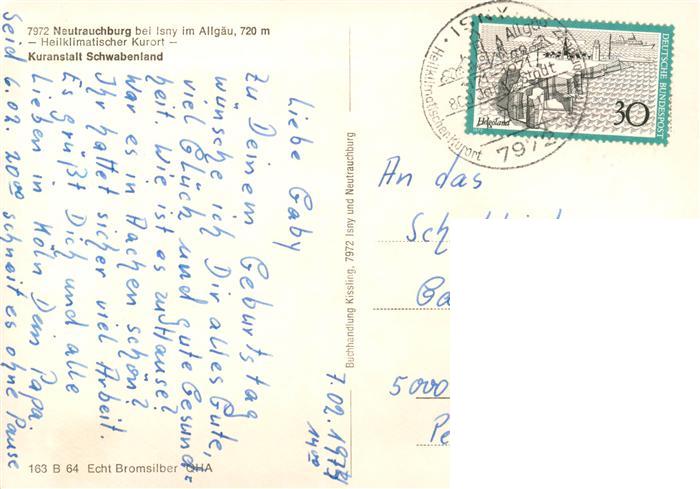 7972 Neutrauchburg bei Isny im Allgäu, 720 m
– Heilklimatischer Kurort –
Kuranstalt Schwabenland
7.02.1973
14⁰⁰
Liebe Gaby
zu Deinem Geburtstag
wünsche ich Dir alles Gute,
viel Glück und gute Gesund=
heit. Wie ist es zu Hause?
War es in Aachen schön?
Ihr hattet sicher viel Arbeit.
Es grüßt Dich und alle
Lieben in Köln Dein Papa.
Seid 6.02. 20⁰⁰ schneit es ohne Pause
163 B 64 Echt Bromsilber OHA
Buchhandlung Kissling, 7972 Isny und Neutrauchburg
ISNY
Allgäu
Stadt
Heilklimatischer Kurort
7972
DEUTSCHE BUNDESPOST
Helgoland
30
An das
Sch
Ga
5000
Pe